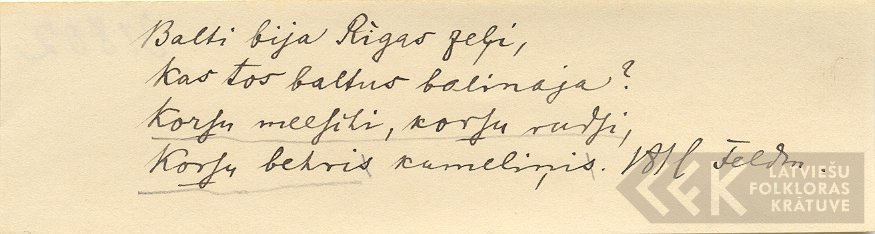 Balti bija Rīgas zeļi,
kas tos baltus balinaja?
Korsu meesithi, korsu rudsi,
Korsu behris kumeliņis. Feldm.
LATVIEŠU
FOLKLORAS
KRĀTUVE